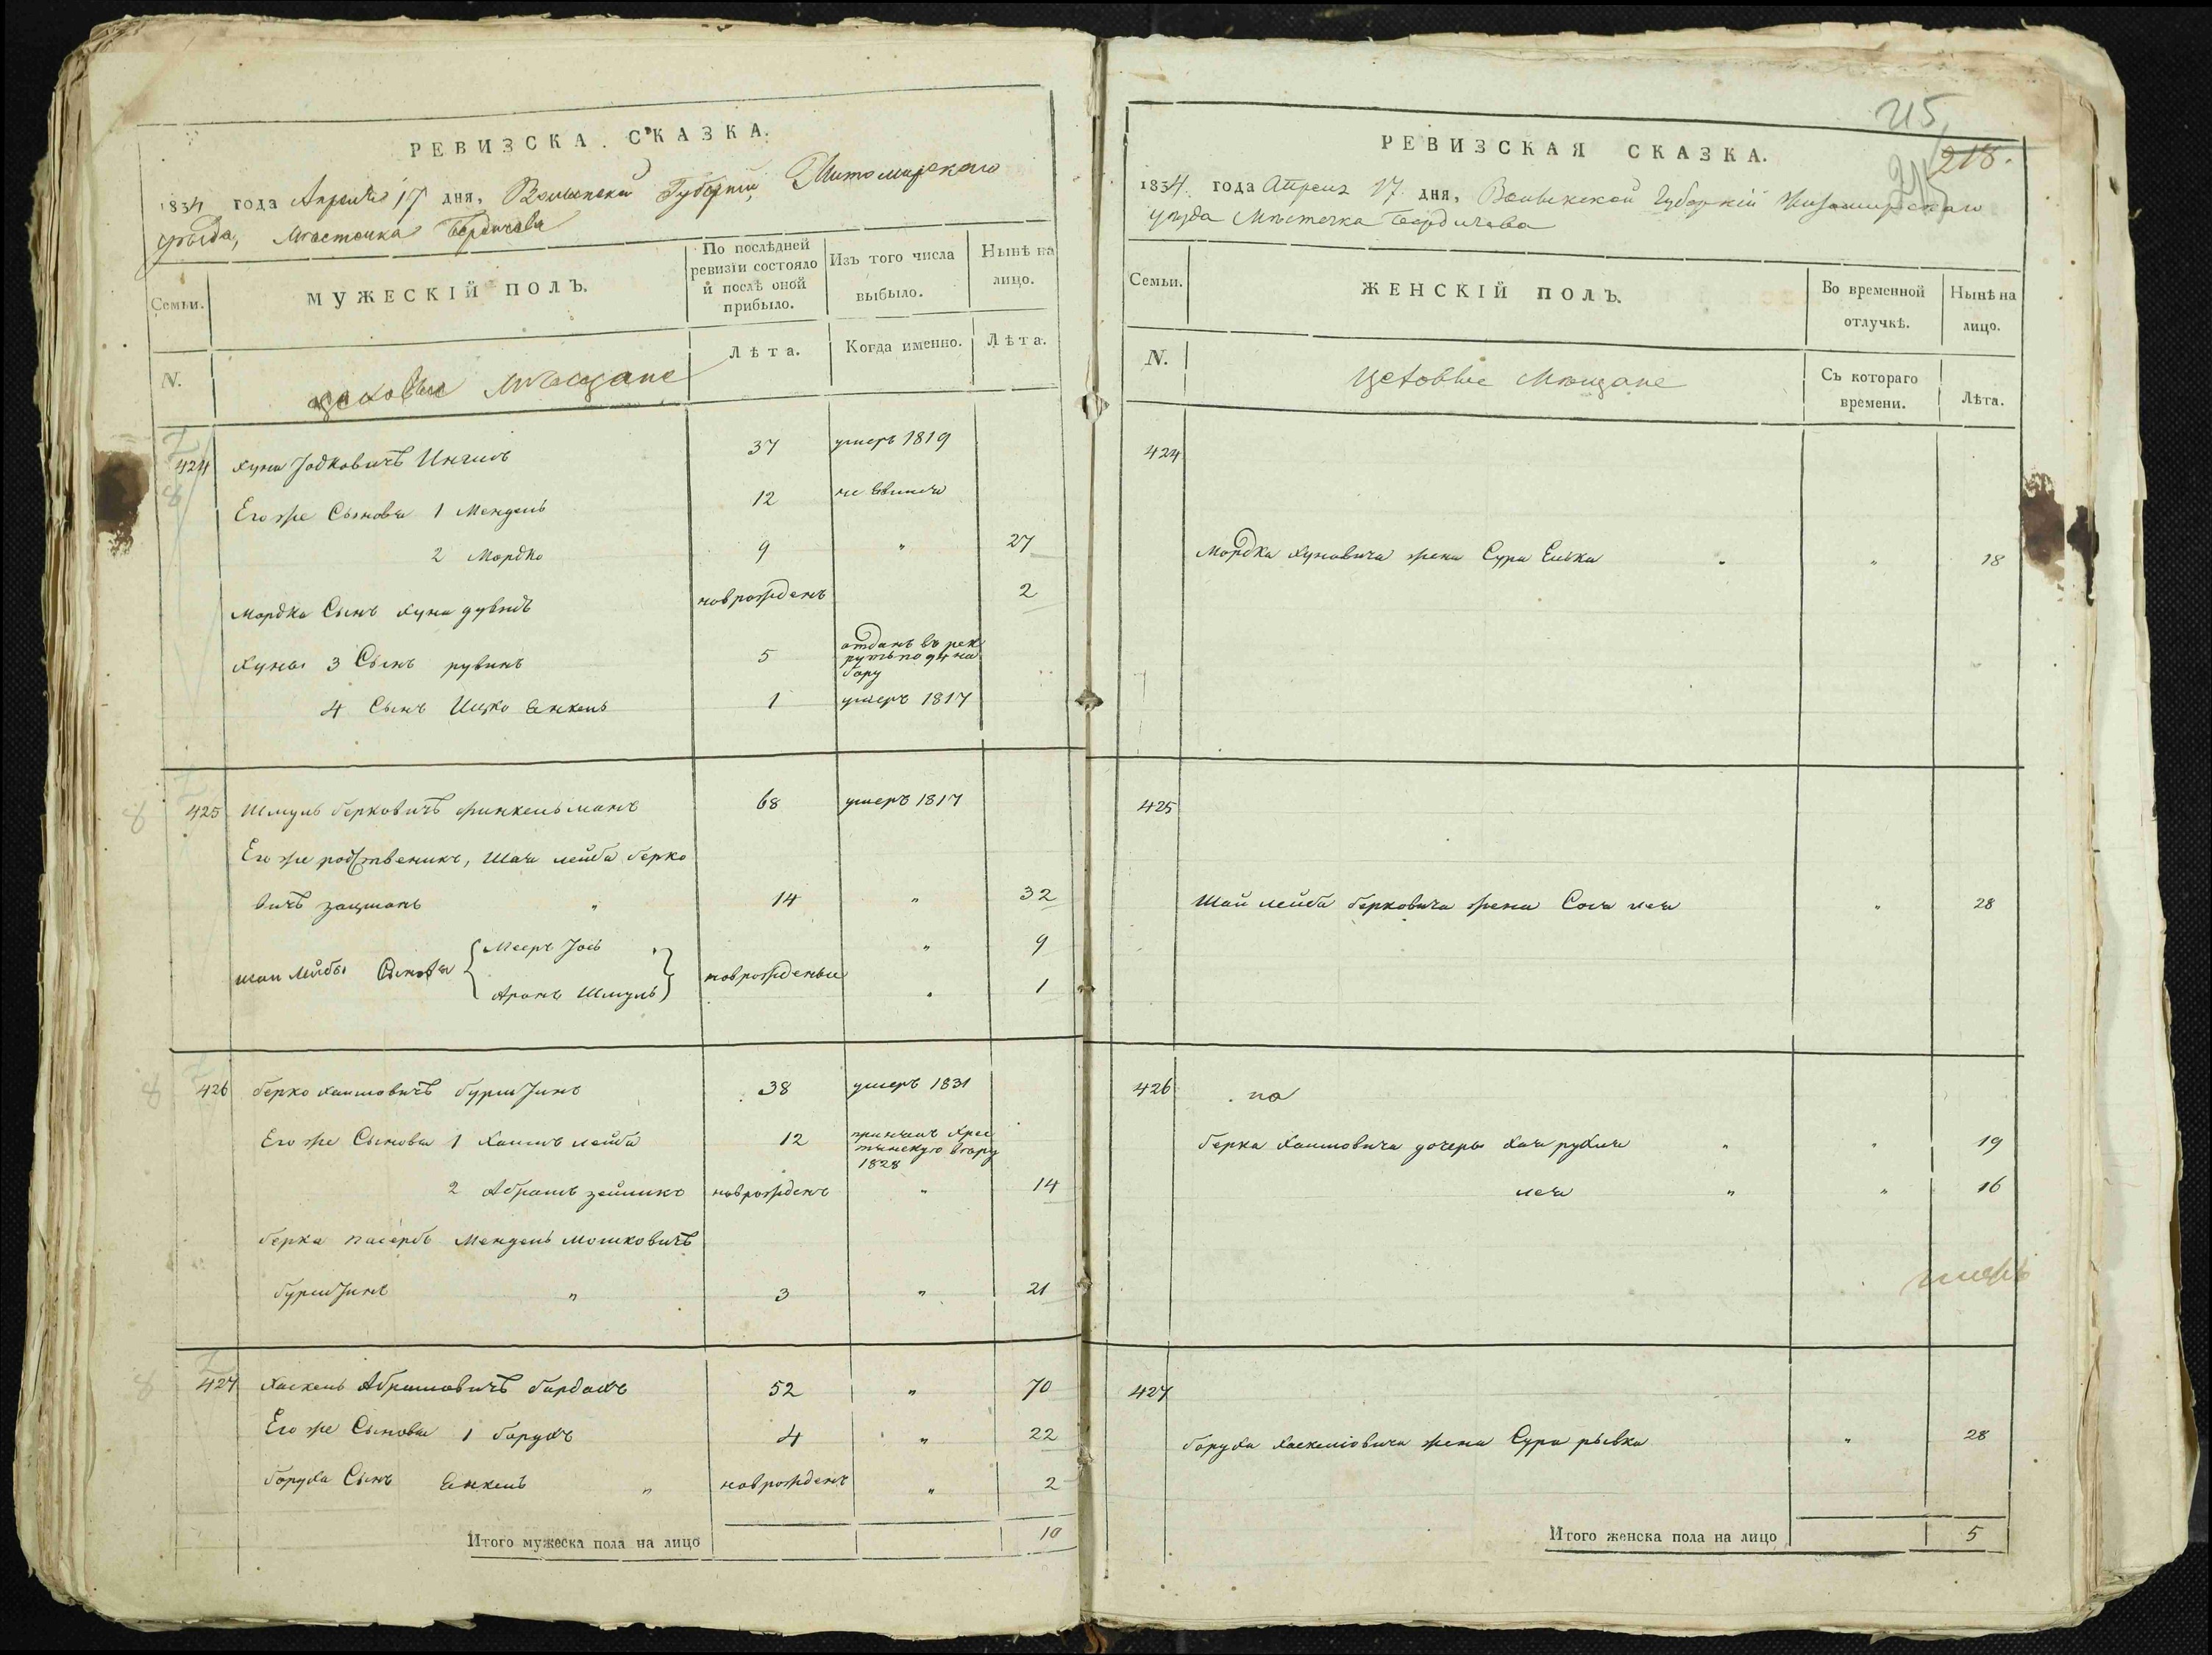 РЕВИЗСКА СКАЗКА.
1834 года Апреля 17 дня, Волынской Губернии, Житомирскаго
уезда, Местечка Бердичева
Семьи.
МУЖЕСКІЙ ПОЛЪ.
По послѣдней ревизіи состояло и послѣ оной прибыло.
Изъ того числа выбыло.
Нынѣ на лицо.
N.
цеховые мѣщане
Лѣта.
Когда именно.
Лѣта.
424 Хуна Іодковичъ 37 умеръ 1819
Его же Сыновья 1 Мендель 12
2 Мордко 9 " 27
Мордка Сынъ Хуна дувидъ новрожденъ 2
Хуны 3 Сынъ рувинъ 5 отданъ въ рекруты по набору
4 Сынъ Ицко Енкель 1 умеръ 1817
425 Шмуль берковичъ финкельманъ 68 умеръ 1817
Его же родственикъ, Шая лейба берко
вичъ зацманъ " 14 " 32
шаи Лейбы Сыновья { Мееръ Іось " } новрожденые " 9
{ Аронъ Шмуль } " 1
426 берко хаимовичъ 38 умеръ 1831
Его же Сыновья 1 Хаимъ лейба 12 1828
2 Абрамъ зейликъ новрожденъ " 14
берка пасербъ Мендель мошковичъ
" 3 " 21
427 Хаскель Абрамовичъ бардахъ 52 " 70
Его же Сыновья 1 борухъ 4 " 22
боруха Сынъ Енкель " новрожденъ " 2
Итого мужеска пола на лицо 10
215
218.
РЕВИЗСКАЯ СКАЗКА.
1834 года Апреля 17 дня, Волынской Губерніи Житомирскаго
уезда Мѣстечка Бердичева
Семьи.
ЖЕНСКІЙ ПОЛЪ.
Во временной отлучкѣ.
Нынѣ на лицо.
N.
Цеховые Мѣщане
Съ котораго времени.
Лѣта.
424
Мордка Хуновича жена Сура Елька " " 18
425
Шаи лейба берковича жена Сося лея " 28
426
берка Хаимовича дочеры Хая рухля " " 19
лея " " 16
427
боруха Хаскелiовича жена Сура рывка " 28
Итого женска пола на лицо 5